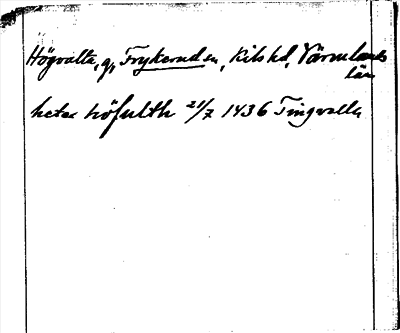 Högvalta, g, Frykerud sn, Kils hd, Värmlands
län
heter höfulth 21/7 1436 Tingvalla